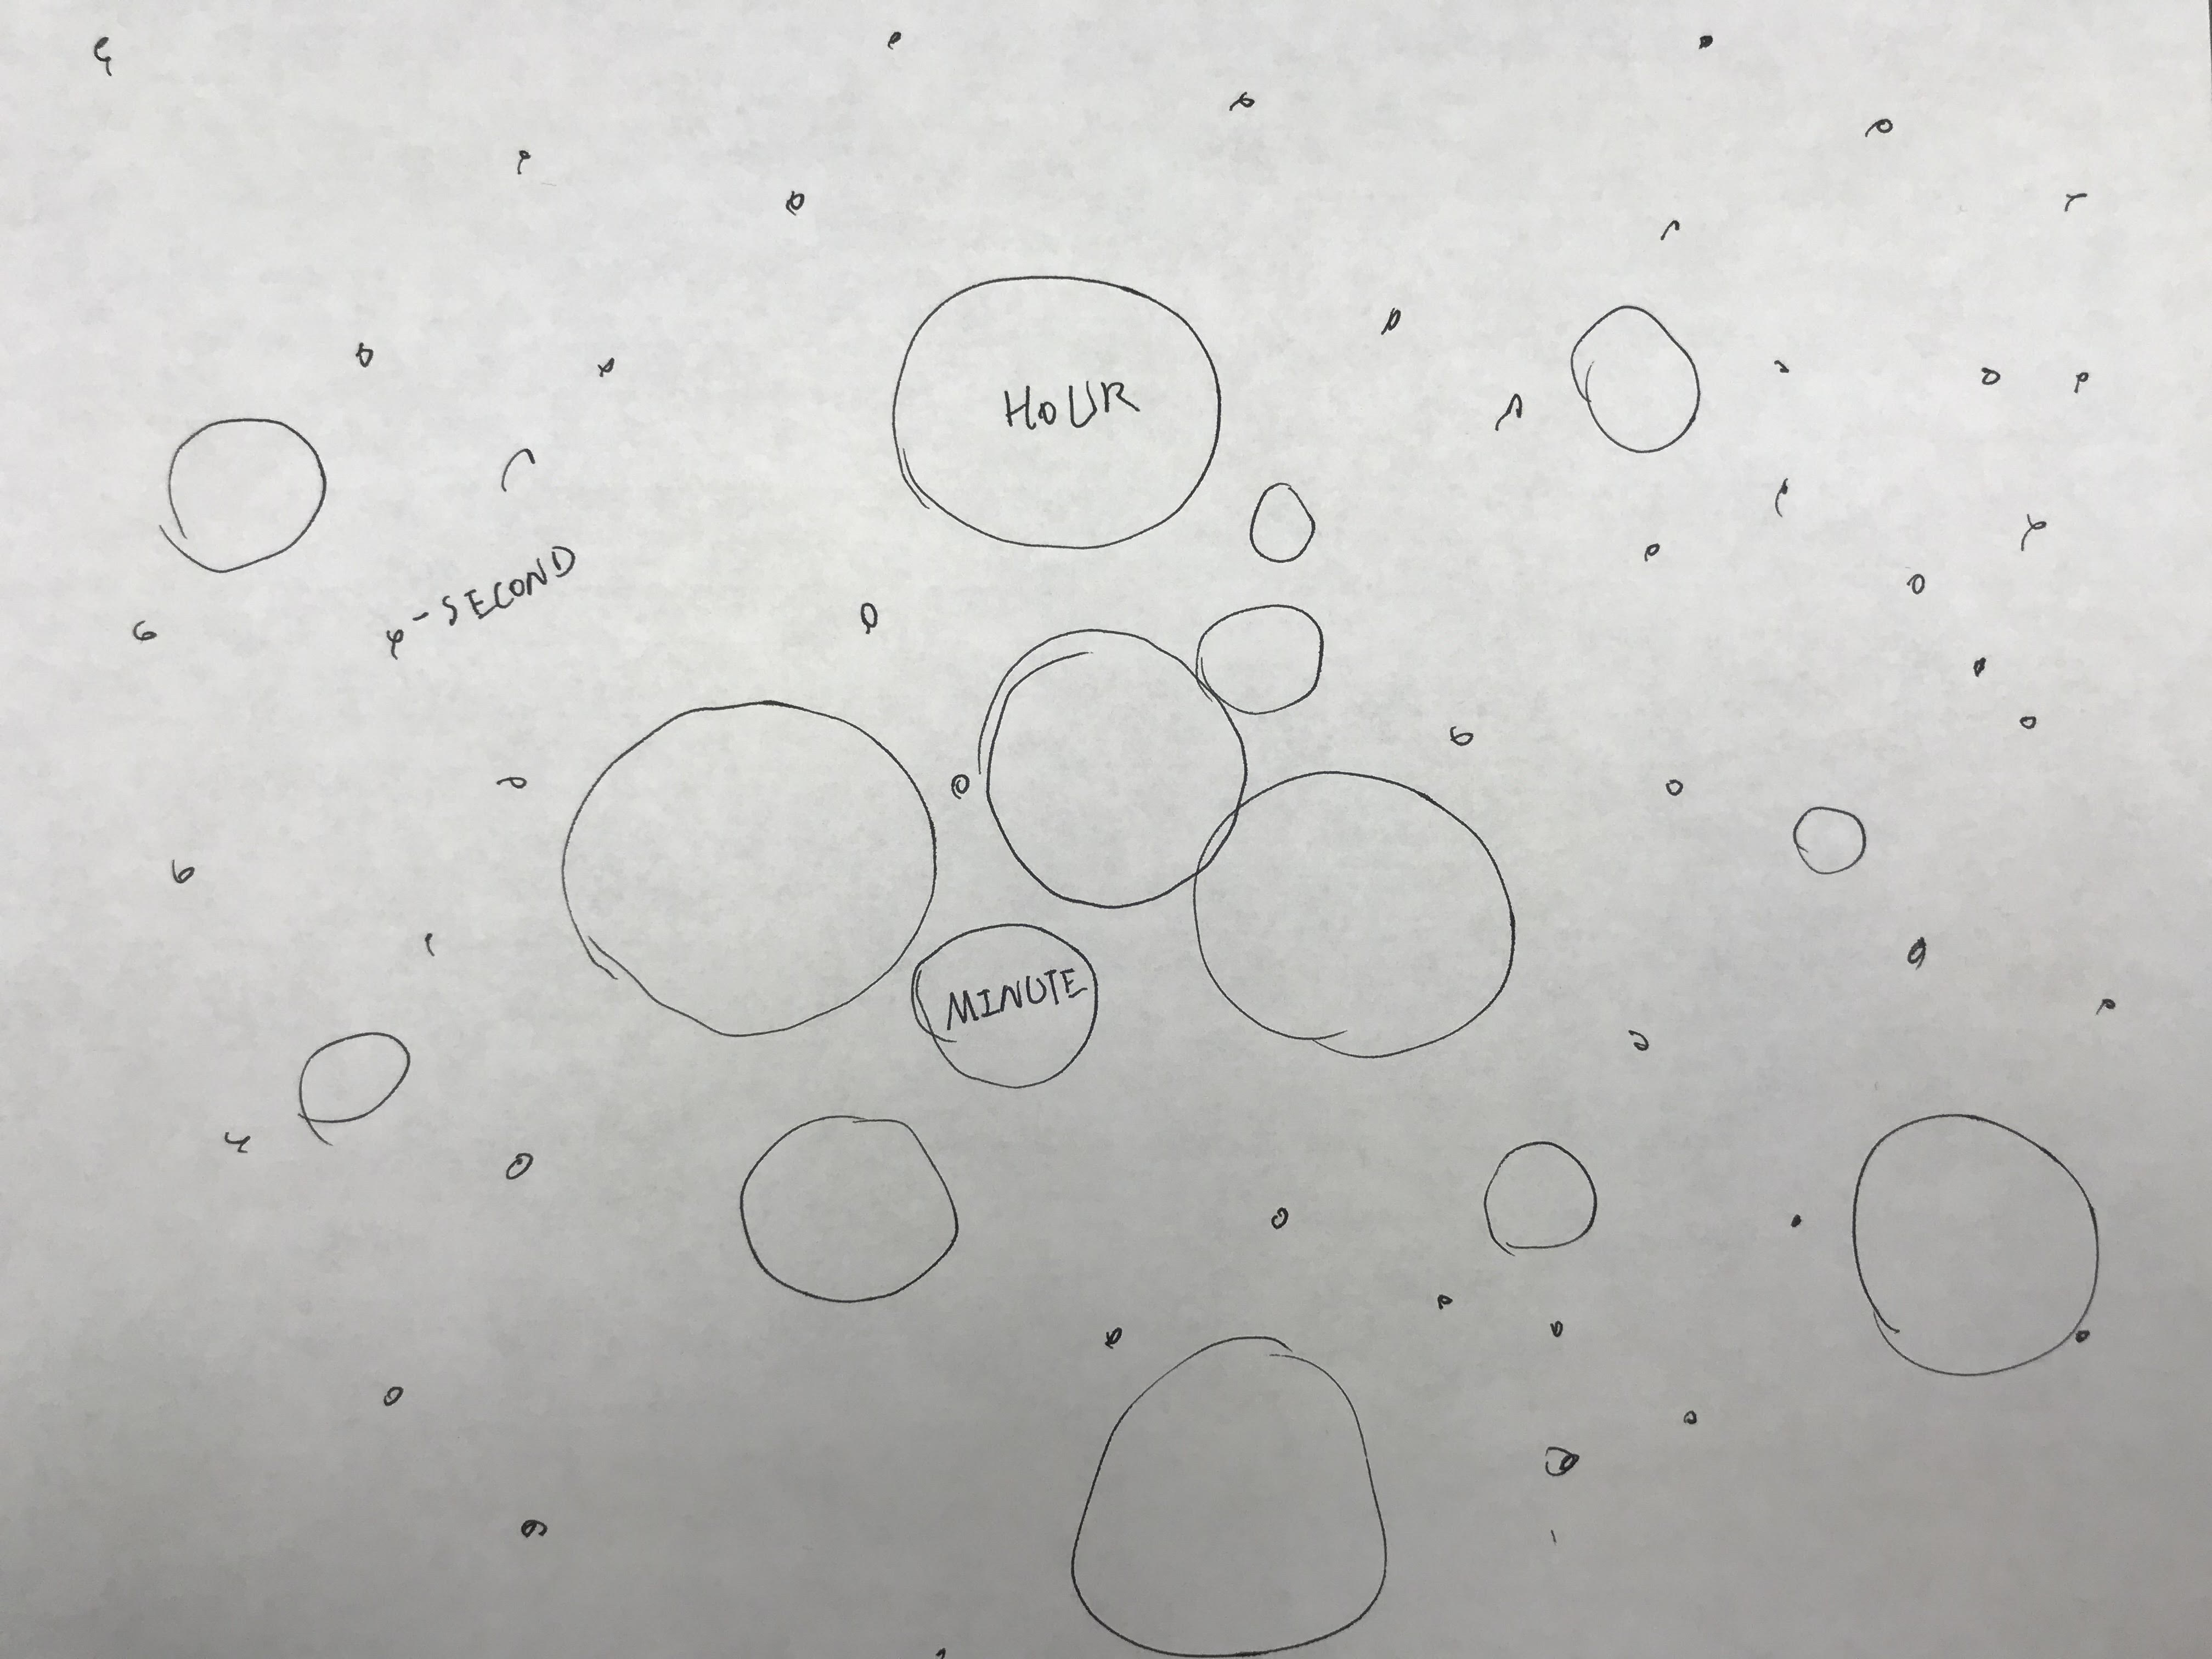 HOUR
-SECOND
MINUTE